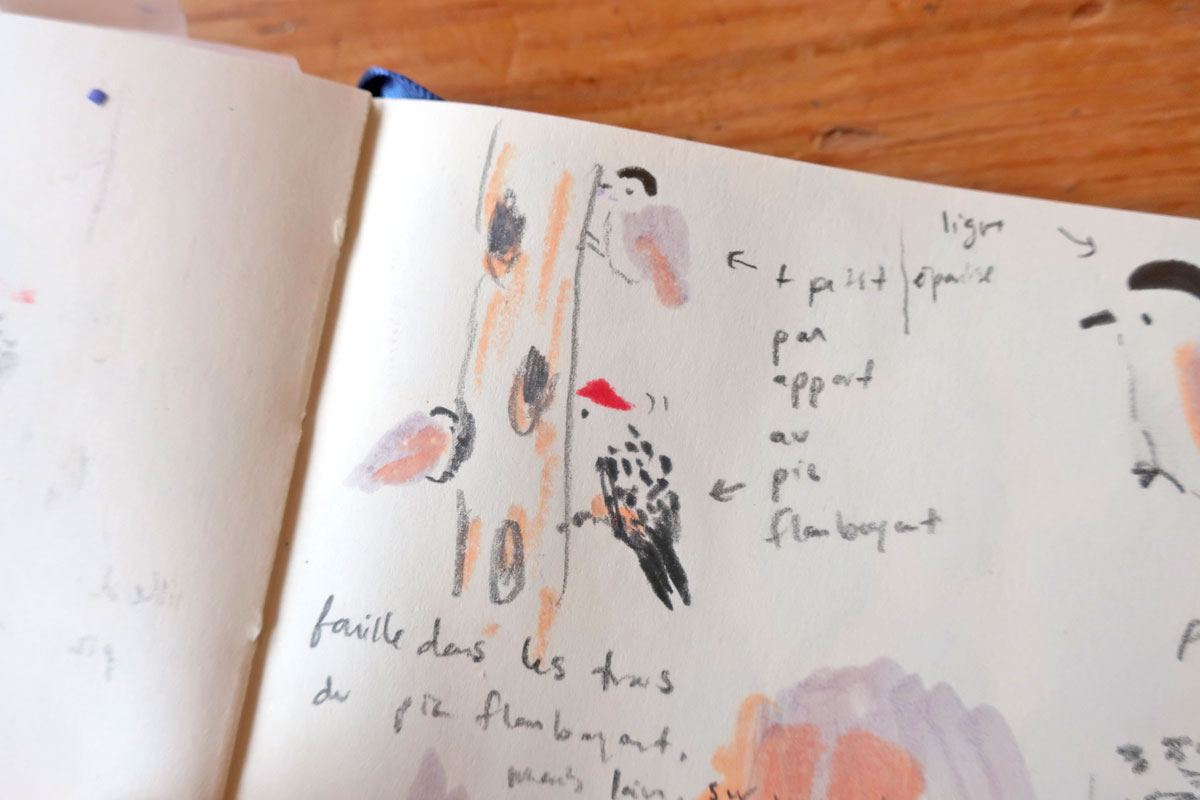 ligne
+ petit épaulse
par
apport
au
pic
flamboyant
fouille dans les trous
du pic flamboyant,
loin, sur